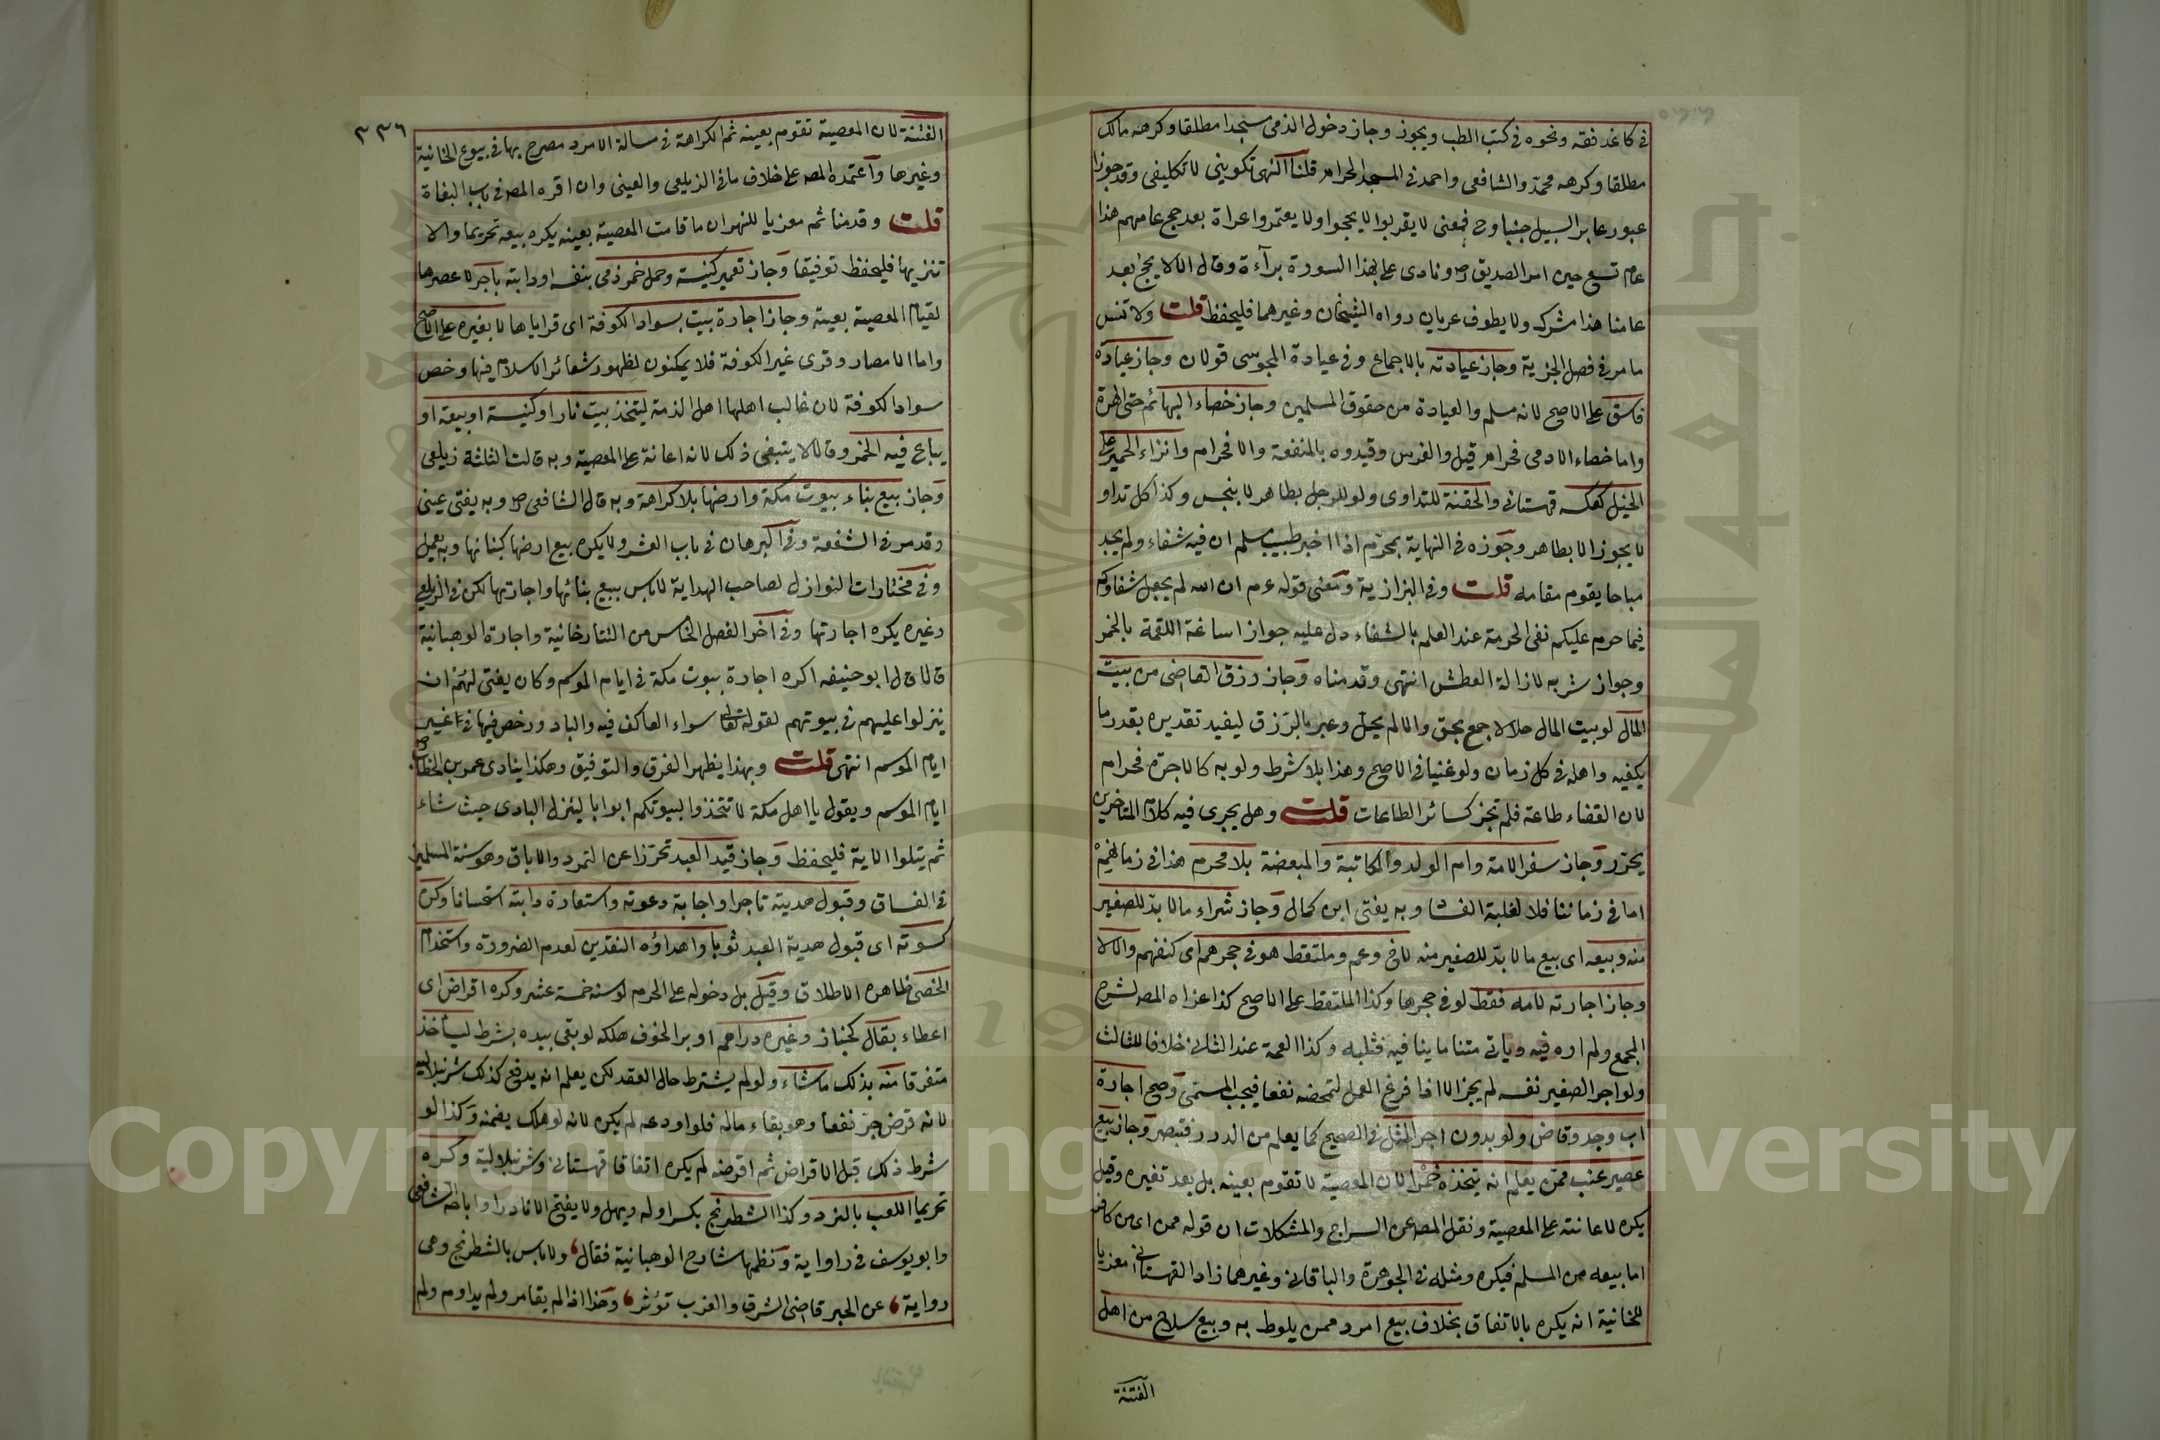 في كاغد فقه ونحوه في كتب الطب ويجوز وجاز دخول الذمي مسجدا مطلقا وكرهه مالك
مطلقا وكرهه محمد والشافعي واحمد في المسجد الحرام قلنا النهي تكويني لا تكليفي وقد جوزوا
عبور عابر السبيل جنبا وح فمعنى لا يقربوا لا يحجوا ولا يعتمروا عراة بعد حج عامهم هذا
عام تسع حين امر الصديق رض ونادى علي بهذا السورة برآءة وقال الا لا يحج بعد
عامنا هذا مشرك ولا يطوف عريان رواه الشيخان وغيرهما فليحفظ قلت ولا تنس
ما مر في فصل الجزية وجاز عيادته بالاجماع وفي عيادة المجوسي قولان وجاز عيادة
فاسق على الاصح لانه مسلم والعيادة من حقوق المسلمين وجاز خصاء البهائم حتى الهرة
واما خصاء الادمي فحرام قيل والفرس وقيدوه بالمنفعة والا فحرام وانزاء الحمير على
الخيل كعكسه قهستاني والحقنة للتداوي ولو للرجل بطاهر لا بنجس وكذا كل تداو
لا يجوز الا بطاهر وجوزه في النهاية بمحرم اذا اخبر طبيب مسلم ان فيه شفاء ولم يجد
مباحا يقوم مقامه قلت وفي البزازية ومعنى قوله عم ان الله لم يجعل شفاؤكم
فيما حرم عليكم نفي الحرمة عند العلم بالشفاء دل عليه جواز اساغة اللقمة بالخمر
وجواز شربه لازالة العطش انتهى وقدمناه وجاز رزق القاضي من بيت
المال لو بيت المال حلالا جمع بحق والا لم يحل وعبر بالرزق ليفيد تقديره بقدر ما
يكفيه واهله في كل زمان ولو غنيا في الاصح وهذا بلا شرط ولو به كالاجرة فحرام
لان القضاء طاعة فلم تجز كسائر الطاعات قلت وهل يجري فيه كلام المتاخرين
يحرر وجاز سفر الامة وام الولد والمكاتبة والمبعضة بلا محرم هذا في زمانهم
اما في زماننا فلا لغلبة الفساد وبه يفتى ابن كمال وجاز شراء ما لا بد للصغير
منه وبيعه اى بيع ما لا بد للصغير منه لاخ وعم وملتقط هو في حجرهم اى كنفهم والا لا
وجاز اجارته لامه فقط لو في حجرها وكذا الملتقط على الاصح كذا عزاه المصه لشرح
المجمع ولم اره فيه وياتي متنا ما ينافيه فتنبه وكذا العمة عند الثاني خلافا للثالث
ولو اجر الصغير نفسه لم يجز الا اذا فرغ العمل لتمحضه نفعا فيجب المسمى وصح اجارة
اب وجد وقاض ولو بدون اجر المثل في الصحيح كما يعلم من الدرر فتبصر وجاز بيع
عصير عنب ممن يعلم انه يتخذه خمرا لان المعصية لا تقوم بعينه بل بعد تغيره وقيل
يكره لاعانته على المعصية ونقل المصه عن السراج والمشكلات ان قوله ممن اى من كافر
اما بيعه من المسلم فيكره ومثله في الجوهرة والباقاني وغيرهما زاد القهستاني معزيا
للخانية انه يكره بالاتفاق بخلاف بيع امرد ممن يلوط به وبيع سلاح من اهل
الفتنة
٣٣٦
الفتنة لان المعصية تقوم بعينه ثم الكراهة في مسالة الامرد مصرح بها في بيوع الخانية
وغيرها واعتمده المصه على خلاف ما في الزيلعي والعيني وان اقره المصه في باب البغاة
قلت وقدمنا ثم معزيا للنهر ان ما قامت المعصية بعينه يكره بيعه تحريما والا
تنزيها فليحفظ توفيقا وجاز تعمير كنيسة وحمل خمر ذمي بنفسه او دابته باجر لا عصرها
لقيام المعصية بعينه وجاز اجارة بيت بسواد الكوفة اى قراياها لا بغيره على الاصح
واما الامصار وقرى غير الكوفة فلا يمكنون لظهور شعائر الاسلام فيها وخص
سواد الكوفة لان غالب اهلها اهل الذمة ليتخذ بيت نار او كنيسة او بيعة او
يباع فيه الخمر وقالا لا ينبغي ذلك لانه اعانة على المعصية وبه قالت الثلثة زيلعي
وجاز بيع بناء بيوت مكة وارضها بلا كراهة وبه قال الشافعي رض وبه يفتى عيني
وقد مر في الشفعة وفي البرهان في باب العشر ولا يكره بيع ارضها كبنائها وبه يعمل
وفي مختارات النوازل لصاحب الهداية لا باس ببيع بنائها واجارتها لكن في الزيلعي
وغيره يكره اجارتها وفي آخر الفصل الخامس من التتارخانية واجارة الوهبانية
قالا قال ابو حنيفه اكره اجارة بيوت مكة في ايام الموسم وكان يفتي لهم ان
ينزلوا عليهم في بيوتهم لقوله تعالى سواء العاكف فيه والباد ورخص فيها في غير
ايام الموسم انتهى قلت وبهذا يظهر الفرق والتوفيق وهكذا ينادي عمر بن الخطاب رض
ايام الموسم ويقول يا اهل مكة لا تتخذوا لبيوتكم ابوابا لينزل البادي حيث شاء
ثم يتلوا الاية فليحفظ وجاز قيد العبد تحرزا عن التمرد والاباق وهو سنة المسلمين
في الفساق وقبول هديته تاجرا واجابة دعوته واستعارة دابته استحسانا وكره
كسوته اى قبول هدية العبد ثوبا واهداؤه النقدين لعدم الضرورة واستخدام
الخصي ظاهره الاطلاق وقيل بل دخوله على الحرم لو سنه خمسة عشر وكره اقراض اى
اعطاء بقال كخباز وغيره دراهم او برا لخوف هلكه لو بقي بيده بشرط لياخذ
متفرقا منه بذلك ما شاء ولو لم يشترط حال العقد لكن يعلم انه يدفع كذلك شرنبلاليه
لانه قرض جر نفعا وهو بقاء ماله فلو اودعه لم يكره لانه لو هلك يضمنه وكذا لو
شرط ذلك قبل الاقراض ثم اقرضه لم يكره اتفاقا قهستاني وشرنبلالية وكره
تحريما اللعب بالنرد وكذا الشطرنج بكسر اوله ويهمل ولا يفتح الا نادرا واباحه الشافعي
وابو يوسف في راواية ونظمها شارح الوهبانية فقال ولا باس بالشطرنج وهى
رواية عن الحبر قاضي الشرق والغرب تؤثر وهذا اذا لم يقامر ولم يداوم ولم
Copyright © King Saud University